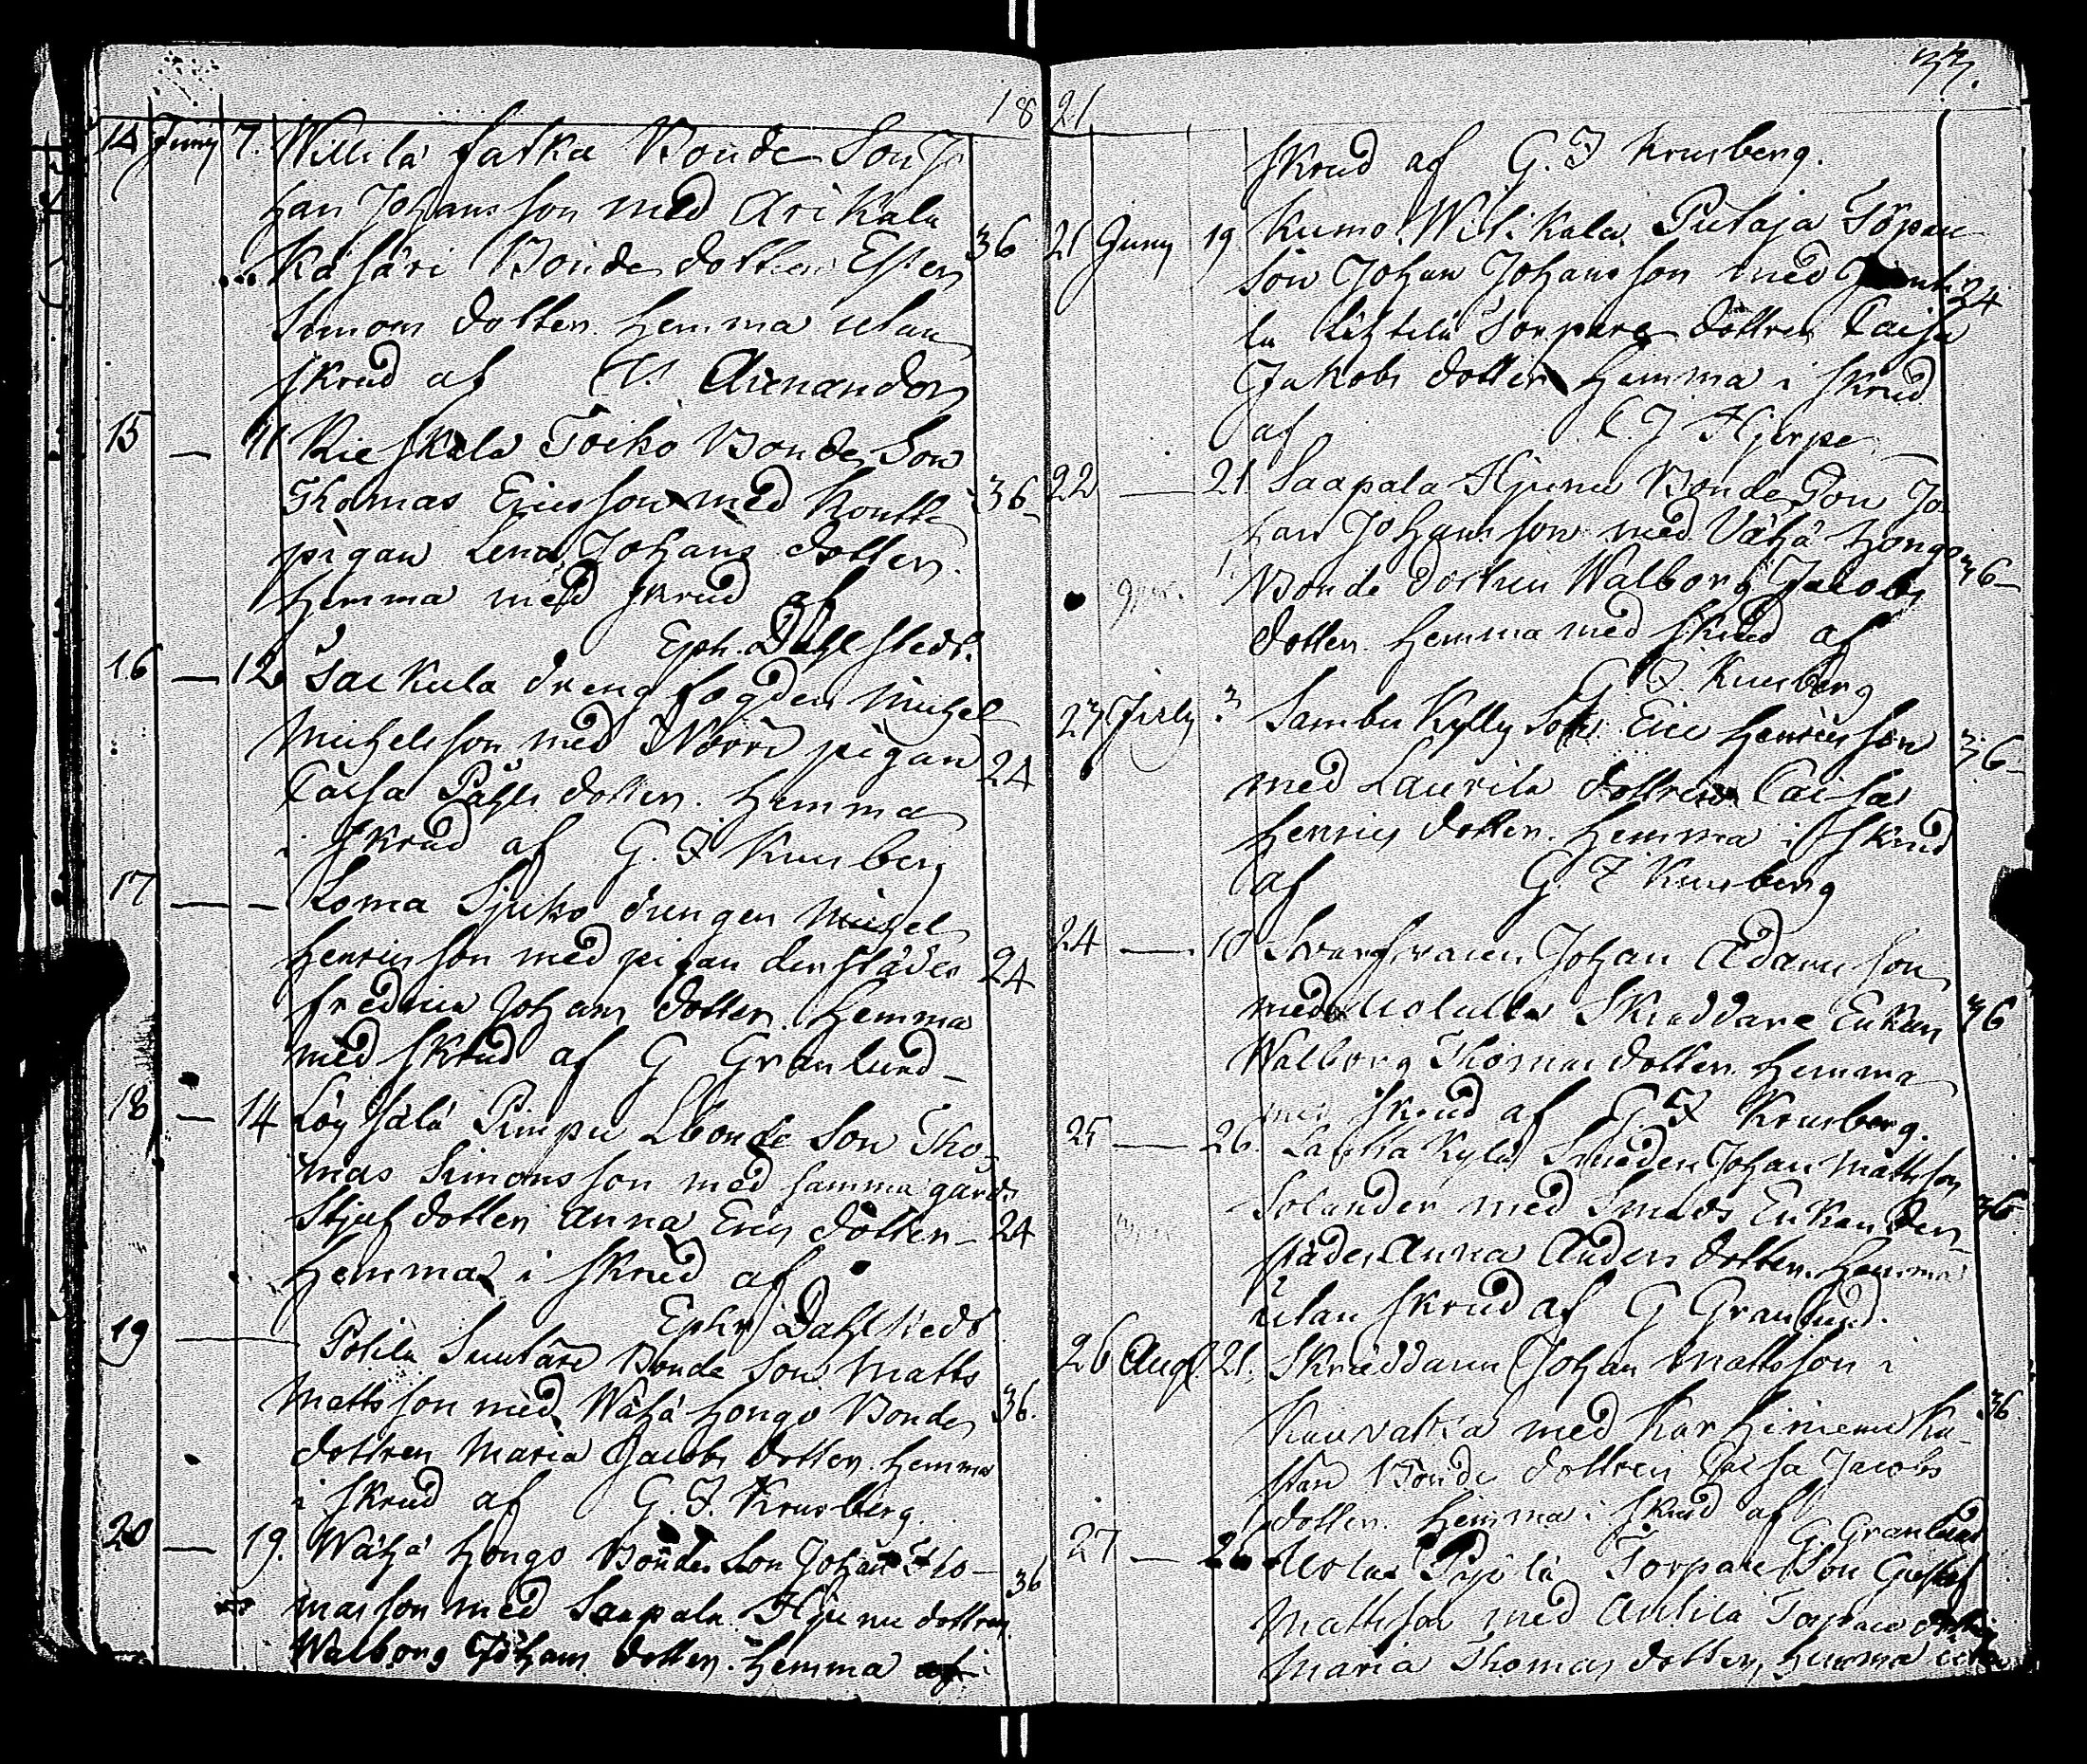 1821
33.
14 Juny 7. Willilä Saska Bonde Son Jo
han Johansson med Arikala
Käsäri Bonde dottren Ester 36
Simons dotter. Hemma utan
skrud af Arenander
15 — 11 Kieskala Toiko Bonde Son
Thomas Ericsson med Kontti 36
pigan Lena Johans dotter.
Hemma med skrud af
Eph. Dahlstedt.
16 — 12 Saikula drengfogden Michel
Michelsson med Norri pigan 24
Caisa Påhls dotter. Hemma
i skrud af G. F. Krusberg
17 — — Loma Sjuko drengen Michel
Henricsson med pigan derstädes 24
Fredrica Johans dotter. Hemma
med skrud af G Granlund
18 — 14 Löysälä Pimpu Lbonde Son Tho
mas Simonsson med samma gårds
Stjufdotter Anna Erics dotter 24
Hemma i skrud af
Ephr Dahlstedt
19 — Pohila Suutare Bonde Son Matts
Mattsson med Wähä Hongo Bonde 36.
dottren Maria Jacobs dotter. Hemma
i skrud af G. F. Krusberg.
20 — 19. Wähä Hongo Bonde Son Johan Tho-
masson med Saapala Hjurru dottren 36
Walborg Johans dotter. Hemma i
skrud af G. F Krusberg.
21 Juny 19 Kumo Wilikala Putaja Torpare
son Johan Johansson med 24
la torpare dottren Caisa
Jakobs dotter Hemma i skrud
af C. J Hjerpe
22 — 21 Saapala Hjurru Bonde Son Jo
han Johansson med Vähä Hongo
Bonde dottren Walborg Jacobs 36
dotter. Hemma med skrud af
G. F. Krusberg
23 July 3 Sambu Kylly Son Eric Henricsson 36
med Laurila dottren Caisa
Henrics dotter. Hemma i skrud
af G. F Krusberg
24 — 10 Svarfvaren Johan Adamsson
med Uolulla Skräddare Enkan 36
Walborg Thomas dotter. Hemma
med skrud af G F Krusberg.
25 — 26. Lauha Kylä Smeden Johan Mattsson
Solander med Smeds Enkan der- 36
städes Anna Anders dotter. Hemma
utan skrud af G Granlund.
26 Aug. 21. Skräddaren Johan Mattsson i
Kauvatsa med Karhiniemi 36
Bonde dottren Caisa Jacobs
dotter. Hemma i skrud af
G Granlund
27 — Pyölä Torpare Son Gustaf
Mattsson med Anttila Torpare
Maria Thomas dotter, Hemma utan